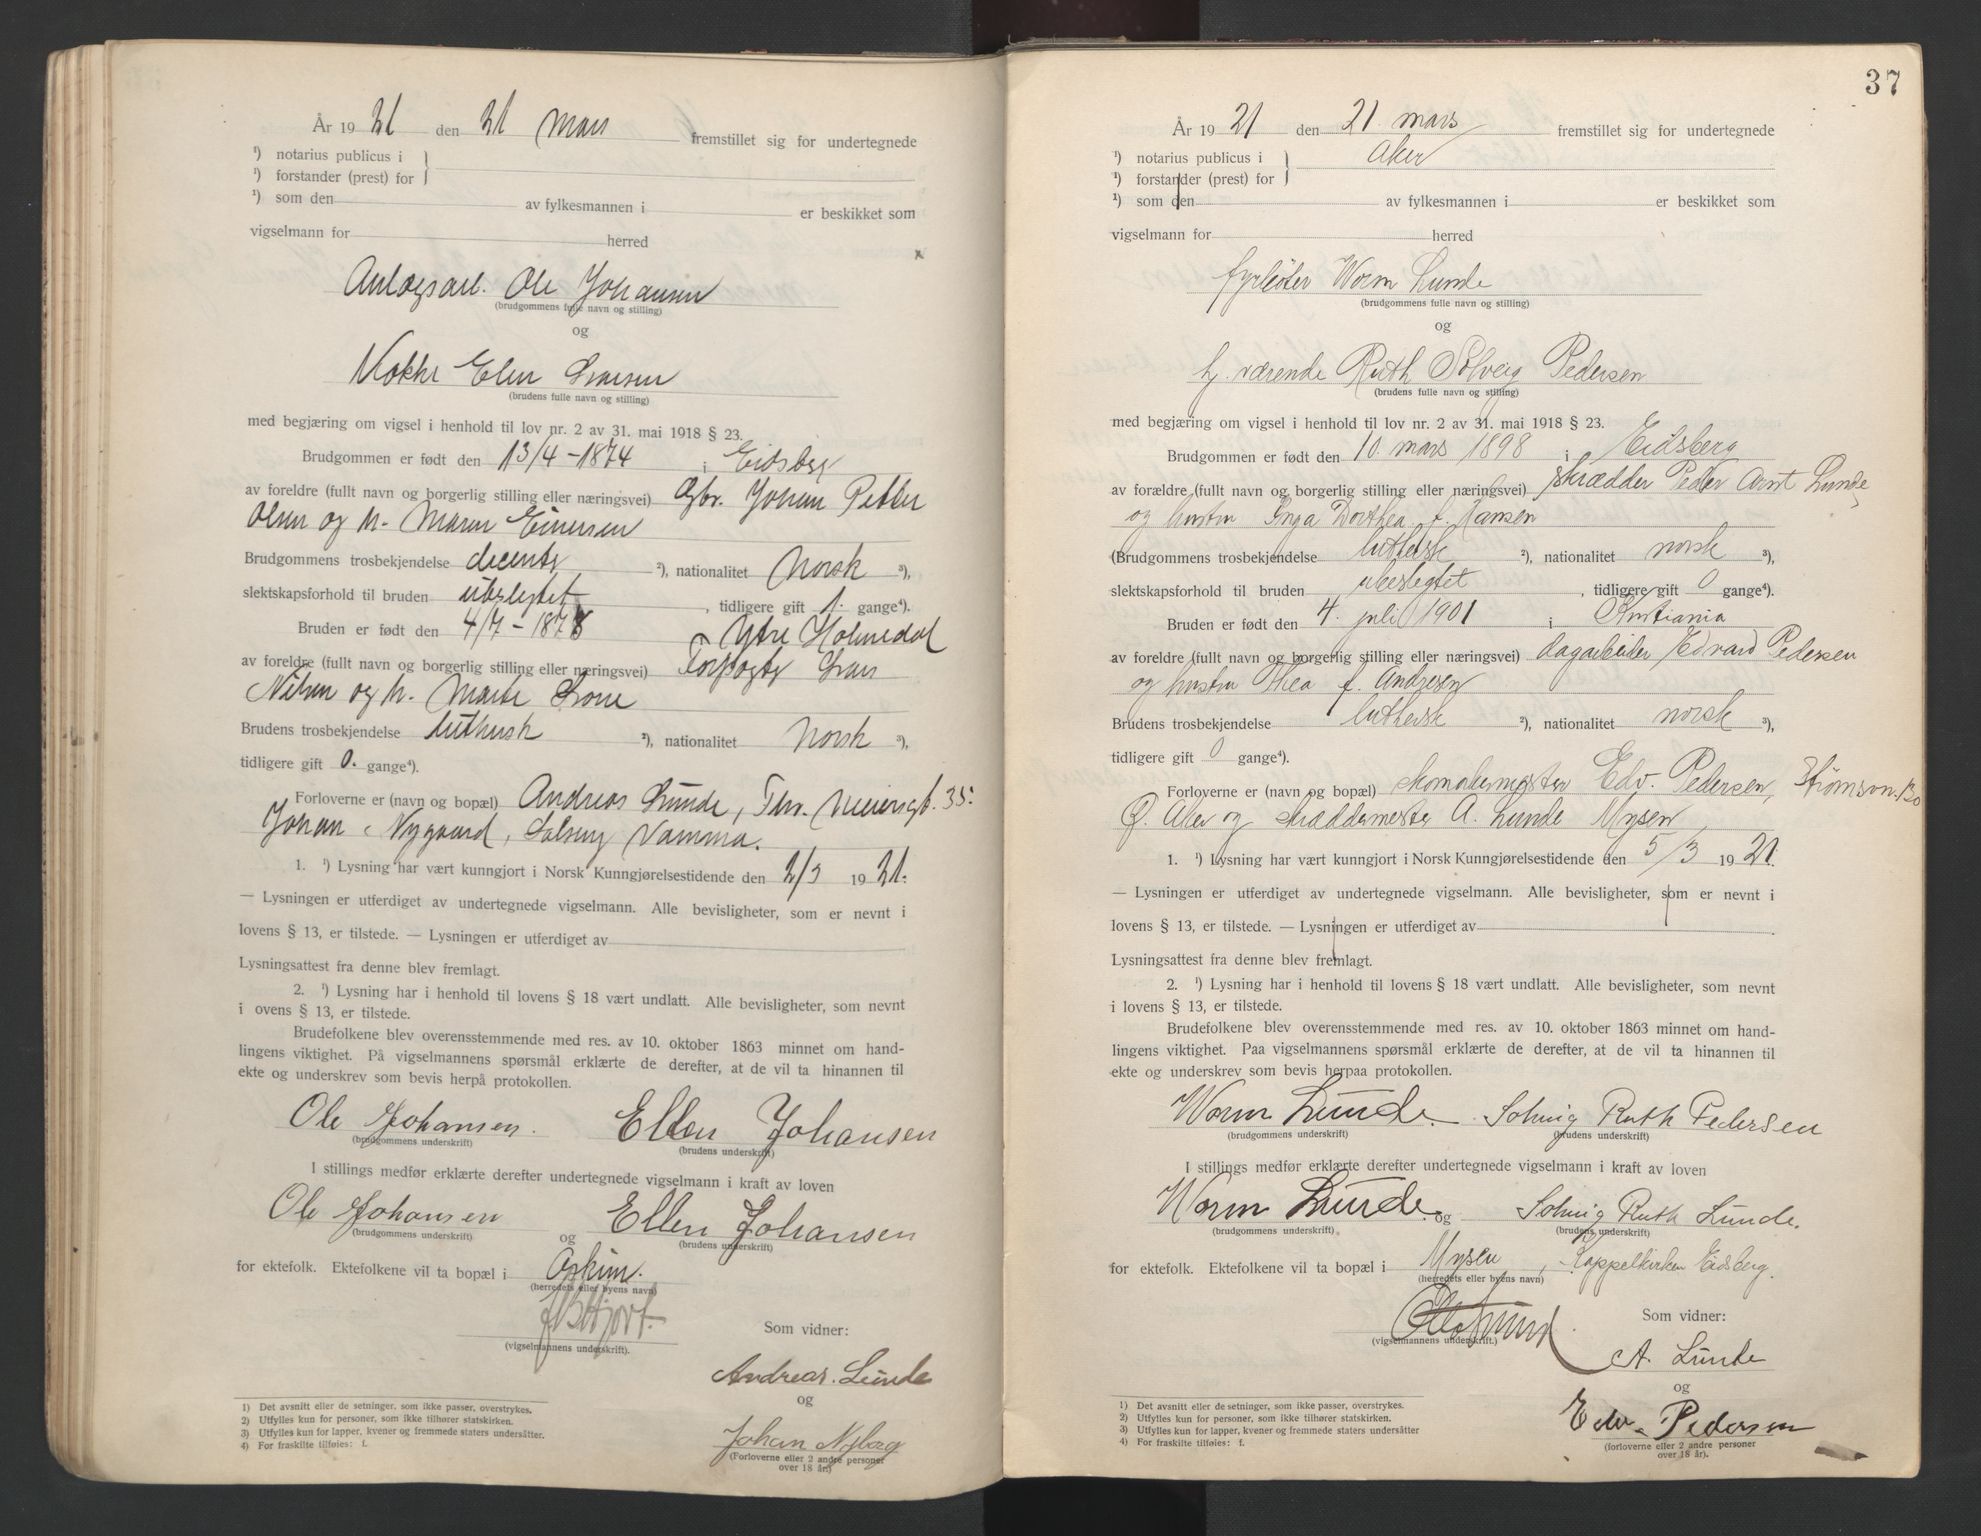 År 19 21 den 21 mars fremstillet sig for undertegnede
¹) notarius publicus i
¹) forstander (prest) for
¹) som den av fylkesmannen i er beskikket som
vigselmann for herred
Anlægsarb. Ole Johansen
(brudgommens fulle navn og stilling)
og
Kokke Elen Larsen
(brudens fulle navn og stilling)
med begjæring om vigsel i henhold til lov nr. 2 av 31. mai 1918 § 23.
Brudgommen er født den 13/4 - 1874 i Eidsberg
av foreldre (fullt navn og borgerlig stilling eller næringsvei) Gbr. Johan Petter
Olsen og h. Maren Einersen
Brudgommens trosbekjendelse ²), nationalitet Norsk ³),
slektskapsforhold til bruden ubeslegtet, tidligere gift 1. gange⁴).
Bruden er født den 4/7 - 1878 i Ytre Holmedal
av foreldre (fullt navn og borgerlig stilling eller næringsvei) Lars
Nilsen og h. Marte Lone
Brudens trosbekjendelse luthersk ²), nationalitet Norsk ³),
tidligere gift 0. gange⁴).
Forloverne er (navn og bopæl) Andreas Lunde, Thv. Meiersgt. 35.
Johan Nygaard, Solberg Vamma.
1. ¹) Lysning har vært kunngjort i Norsk Kunngjørelsestidende den 2/3 19 21.
— Lysningen er utferdiget av undertegnede vigselmann. Alle bevisligheter, som er nevnt i
lovens § 13, er tilstede. — Lysningen er utferdiget av
Lysningsattest fra denne blev fremlagt.
2. ¹) Lysning har i henhold til lovens § 18 vært undlatt. Alle bevisligheter, som nevnt
i ovens § 13, er tilstede.
Brudefolkene blev overensstemmende med res. av 10. oktober 1863 minnet om hand-
lingens viktighet. På vigselmannens spørsmål erklærte de derefter, at de vil ta hinannen til
ekte og underskrev som bevis herpå protokollen.
Ole Johansen. Ellen Johansen
(brudgommens underskrift) (brudens underskrift)
I stillings medfør erklærte derefter undertegnede vigselmann i kraft av loven
Ole Johansen og Ellen Johansen
(brudgommens underskrift) (brudens underskrift)
for ektefolk. Ektefolkene vil ta bopæl i Askim.
(herredets eller byens navn)
(vigselmannens underskrift).
Som vidner:
Andreas. Lunde
og
Johan Nyberg
(Forloverne eller 2 andre personer
over 18 år.)
1) Det avsnitt eller de setninger, som ikke passer, overstrykes.
2) Utfylles kun for personer, som ikke tilhører statskirken.
3) Utfylles kun for lapper, kvener og fremmede staters undersåtter.
4) For fraskilte tilføies: f.
37
År 19 21 den 21. mars fremstillet sig for undertegnede
¹) notarius publicus i Aker
¹) forstander (prest) for
¹) som den av fylkesmannen i er beskikket som
vigselmann for herred
fyrbøter Worm Lunde
(brudgommens fulle navn og stilling)
og
hj. værende Ruth Solveig Pedersen
(brudens fulle navn og stilling)
med begjæring om vigsel i henhold til lov nr. 2 av 31. mai 1918 § 23.
Brudgommen er født den 10. mars 1898 i Eidsberg
av forældre (fullt navn og borgerlig stilling eller næringsvei) skrædder Peder Arnt Lunde
og hustru Inga Dorthea f. Hansen
(Brudgommens trosbekjendelse luthersk ²), nationalitet norsk ³),
slektskapsforhold til bruden ubeslegtet, tidligere gift 0 gange⁴).
Bruden er født den 4. juli 1901 i Kristiania
av foreldre (fullt navn og borgerlig stilling eller næringsvei) dagarbeider Edvard Pedersen
og hustru Thea f. Andresen
Brudens trosbekjendelse luthersk ²), nationalitet norsk ³),
tidligere gift 0 gange⁴).
Forloverne er (navn og bopæl) skomakermester Edv. Pedersen,
Ø. Aker og skræddermester A. Lunde Mysen
1. ¹) Lysning har vært kunngjort i Norsk Kunngjørelsestidende den 5/3 19 21.
— Lysningen er utferdiget av undertegnede vigselmann. Alle bevisligheter, som er nevnt i
lovens § 13, er tilstede. — Lysningen er utferdiget av
Lysningsattest fra denne blev fremlagt.
2. ¹) Lysning har i henhold til lovens § 18 vært undlatt. Alle bevisligheter, som nevnt
i lovens § 13, er tilstede.
Brudefolkene blev overensstemmende med res. av 10. oktober 1863 minnet om hand-
lingens viktighet. Paa vigselmannens spørsmål erklærte de derefter, at de vil ta hinannen til
ekte og underskrev som bevis herpaa protokollen.
Worm Lunde. Solveig Ruth Pedersen
(brudgommens underskrift) (brudens underskrift)
I stillings medfør erklærte derefter undertegnede vigselmann i kraft av loven
Worm Lunde. og Solveig Ruth Lunde.
(brudgommens underskrift). (brudens underskrift)
for ektefolk. Ektefolkene vil ta bopæl i Mysen, Kappelkirken Eidsberg.
(herredets eller byens navn)
(vigselmannens underskrift.)
Som vidner:
A. Lunde
og
Edv. Pedersen
(forloverne eller 2 andre personer
over 18 år).
1) Det avsnitt eller de setninger, som ikke passer, overstrykes.
2) Utfylles kun for personer, som ikke tilhører statskirken.
3) Utfylles kun for lapper, kvener og fremmede staters undersåtter
4) For fraskilte tilføies: f.